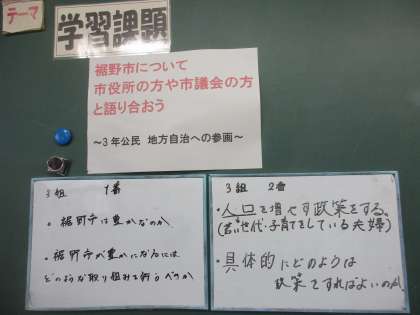 テーマ
学習課題
裾野市について
市役所の方や市議会の方
と語り合おう
～3年公民 地方自治への参画～
3組 1番
・裾野市は豊かなのか
・裾野市が豊かになるには
どのような取り組みを行うべきか
3組 2番
・人口を増やす政策をする。
(若い世代・子育てをしている夫婦)
・具体的にどのような
政策をすればよいのか